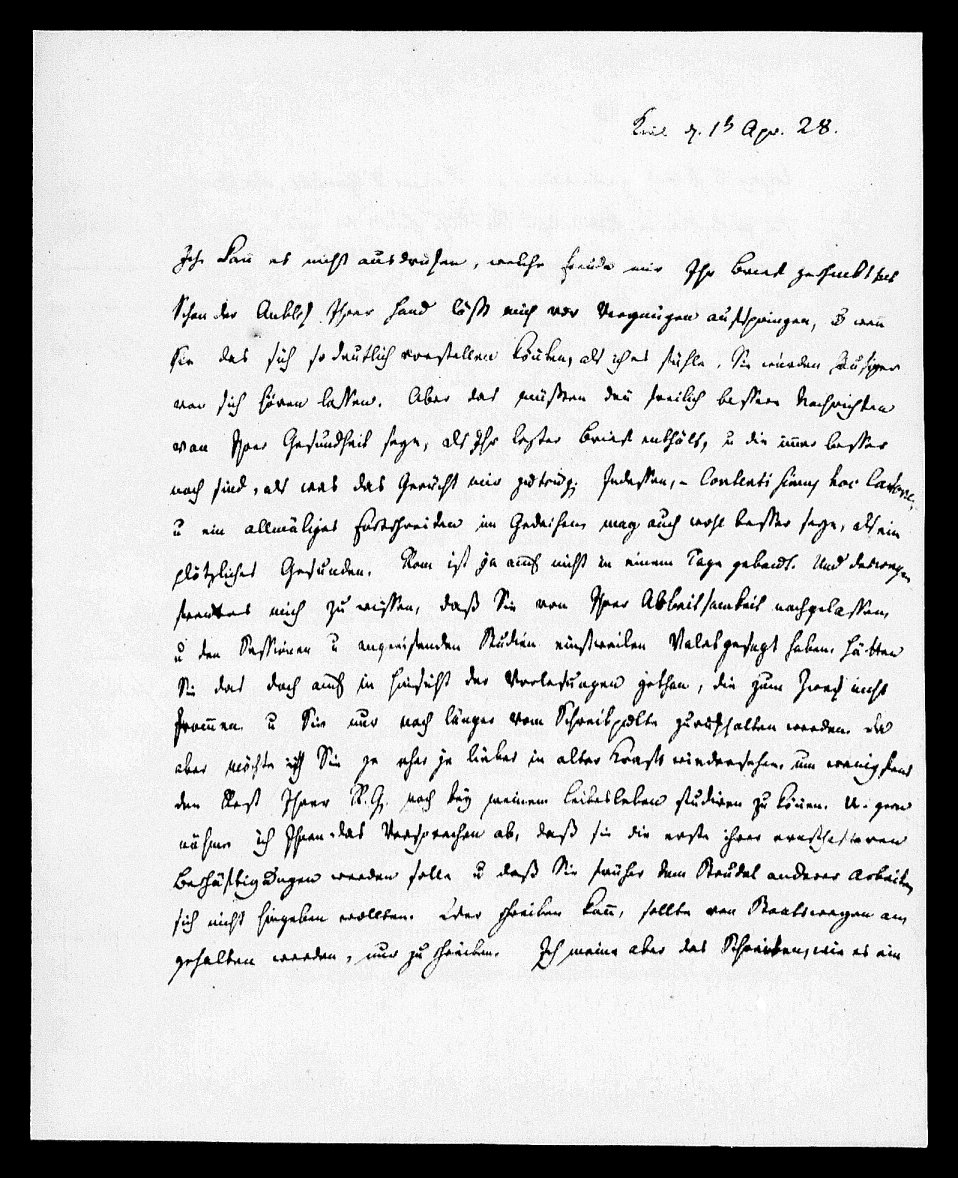 Kiel d. 15 Apr. 28.
Ich kann es nicht ausdrüken, welche Freude mir Ihr Brief gemacht hat
Schon der Anblick Ihrer Hand läßt mich vor Vergnügen aufspringen, u wenn
Sie das sich so deutlich vorstellen könten, als ich es fühle, Sie würden häufiger
von sich hören lassen. Aber das müßten den freilich bessere Nachrichten
von Ihrer Gesundheit seyn, als Ihr lezter Brief enthält, u die immer besser
noch sind, als was das Gerücht mir zutrug. Indessen, – Contenti simus hoc Catone,
u ein allmäliges Fortschreiten im Gedeihen mag auch wohl besser seyn, als ein
plötzliches Gesunden. Rom ist ja auch nicht in einem Tage gebaut. Und deswegen
freut es mich zu wissen, daß Sie von Ihrer Arbeitsamkeit nachgelassen,
u den Sessionen u angreifenden Studien einstweilen Valet gesagt haben. Hätten
Sie das doch auch in Hinsicht der Vorlesungen gethan, die zum Zweck nicht
frommen u Sie nur noch länger vom Schreibpulte zurückhalten werden. Da
aber möchte ich Sie je eher je lieber in alter Kraft wiedersehen, um wenigstens
den Rest Ihrer R.G. noch bey meinem Leibesleben studiren zu können. U. gern
nähme ich Ihnen das Versprechen ab, daß sie die erste ihrer ernsthafteren
Beschäftigungen werden solle u daß Sie früher dem Strudel anderer Arbeiten
sich nicht hingeben wollten. Wer schreiben kann, sollte von Staatswegen an
gehalten werden, nur zu schreiben. Ich meine aber das Schreiben, wie es ein